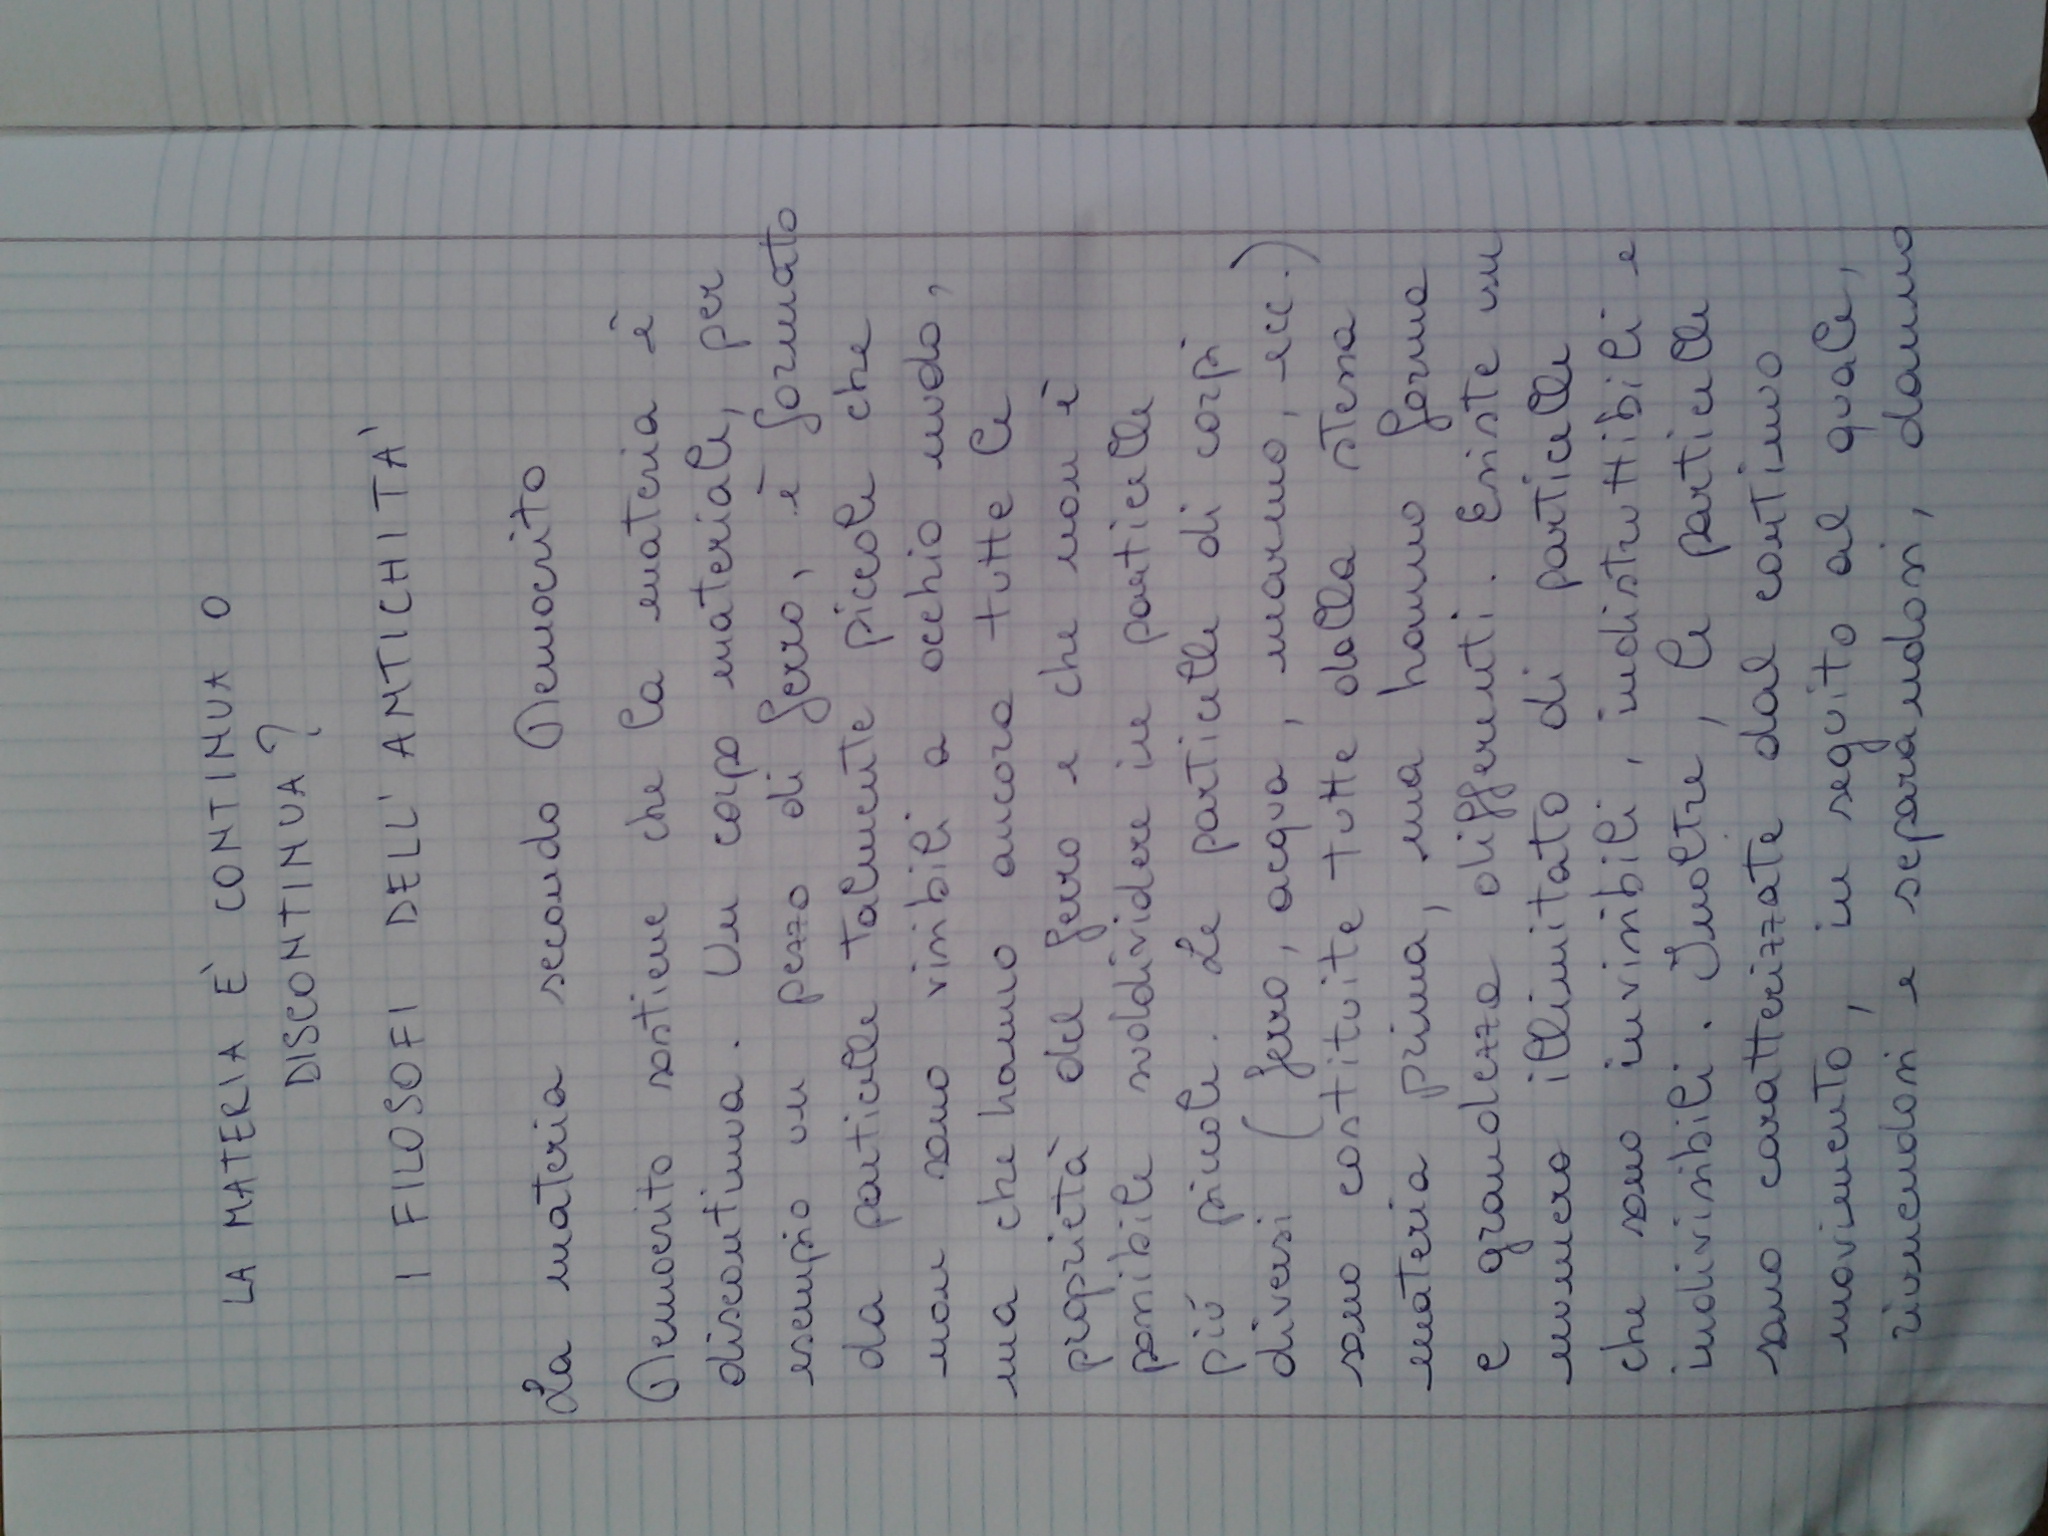 LA MATERIA È CONTINUA O
DISCONTINUA?
I FILOSOFI DELL'ANTICHITA'
La materia secondo Democrito
Democrito sostiene che la materia è
discontinua. Un corpo materiale, per
esempio un pezzo di ferro, è formato
da particelle talmente piccole che
non sono visibili a occhio nudo,
ma che hanno ancora tutte le
proprietà del ferro e che non è
possibile suddividere in particelle
più piccole. Le particelle di corpi
diversi (ferro, acqua, marmo, ecc.)
sono costituite tutte dalla stessa
materia prima, ma hanno forma
e grandezza differenti. Esiste un
numero illimitato di particelle
che sono invisibili, indistruttibili e
indivisibili. Inoltre, le particelle
sono caratterizzate dal continuo
movimento, in seguito al quale,
riunendosi e separandosi, danno